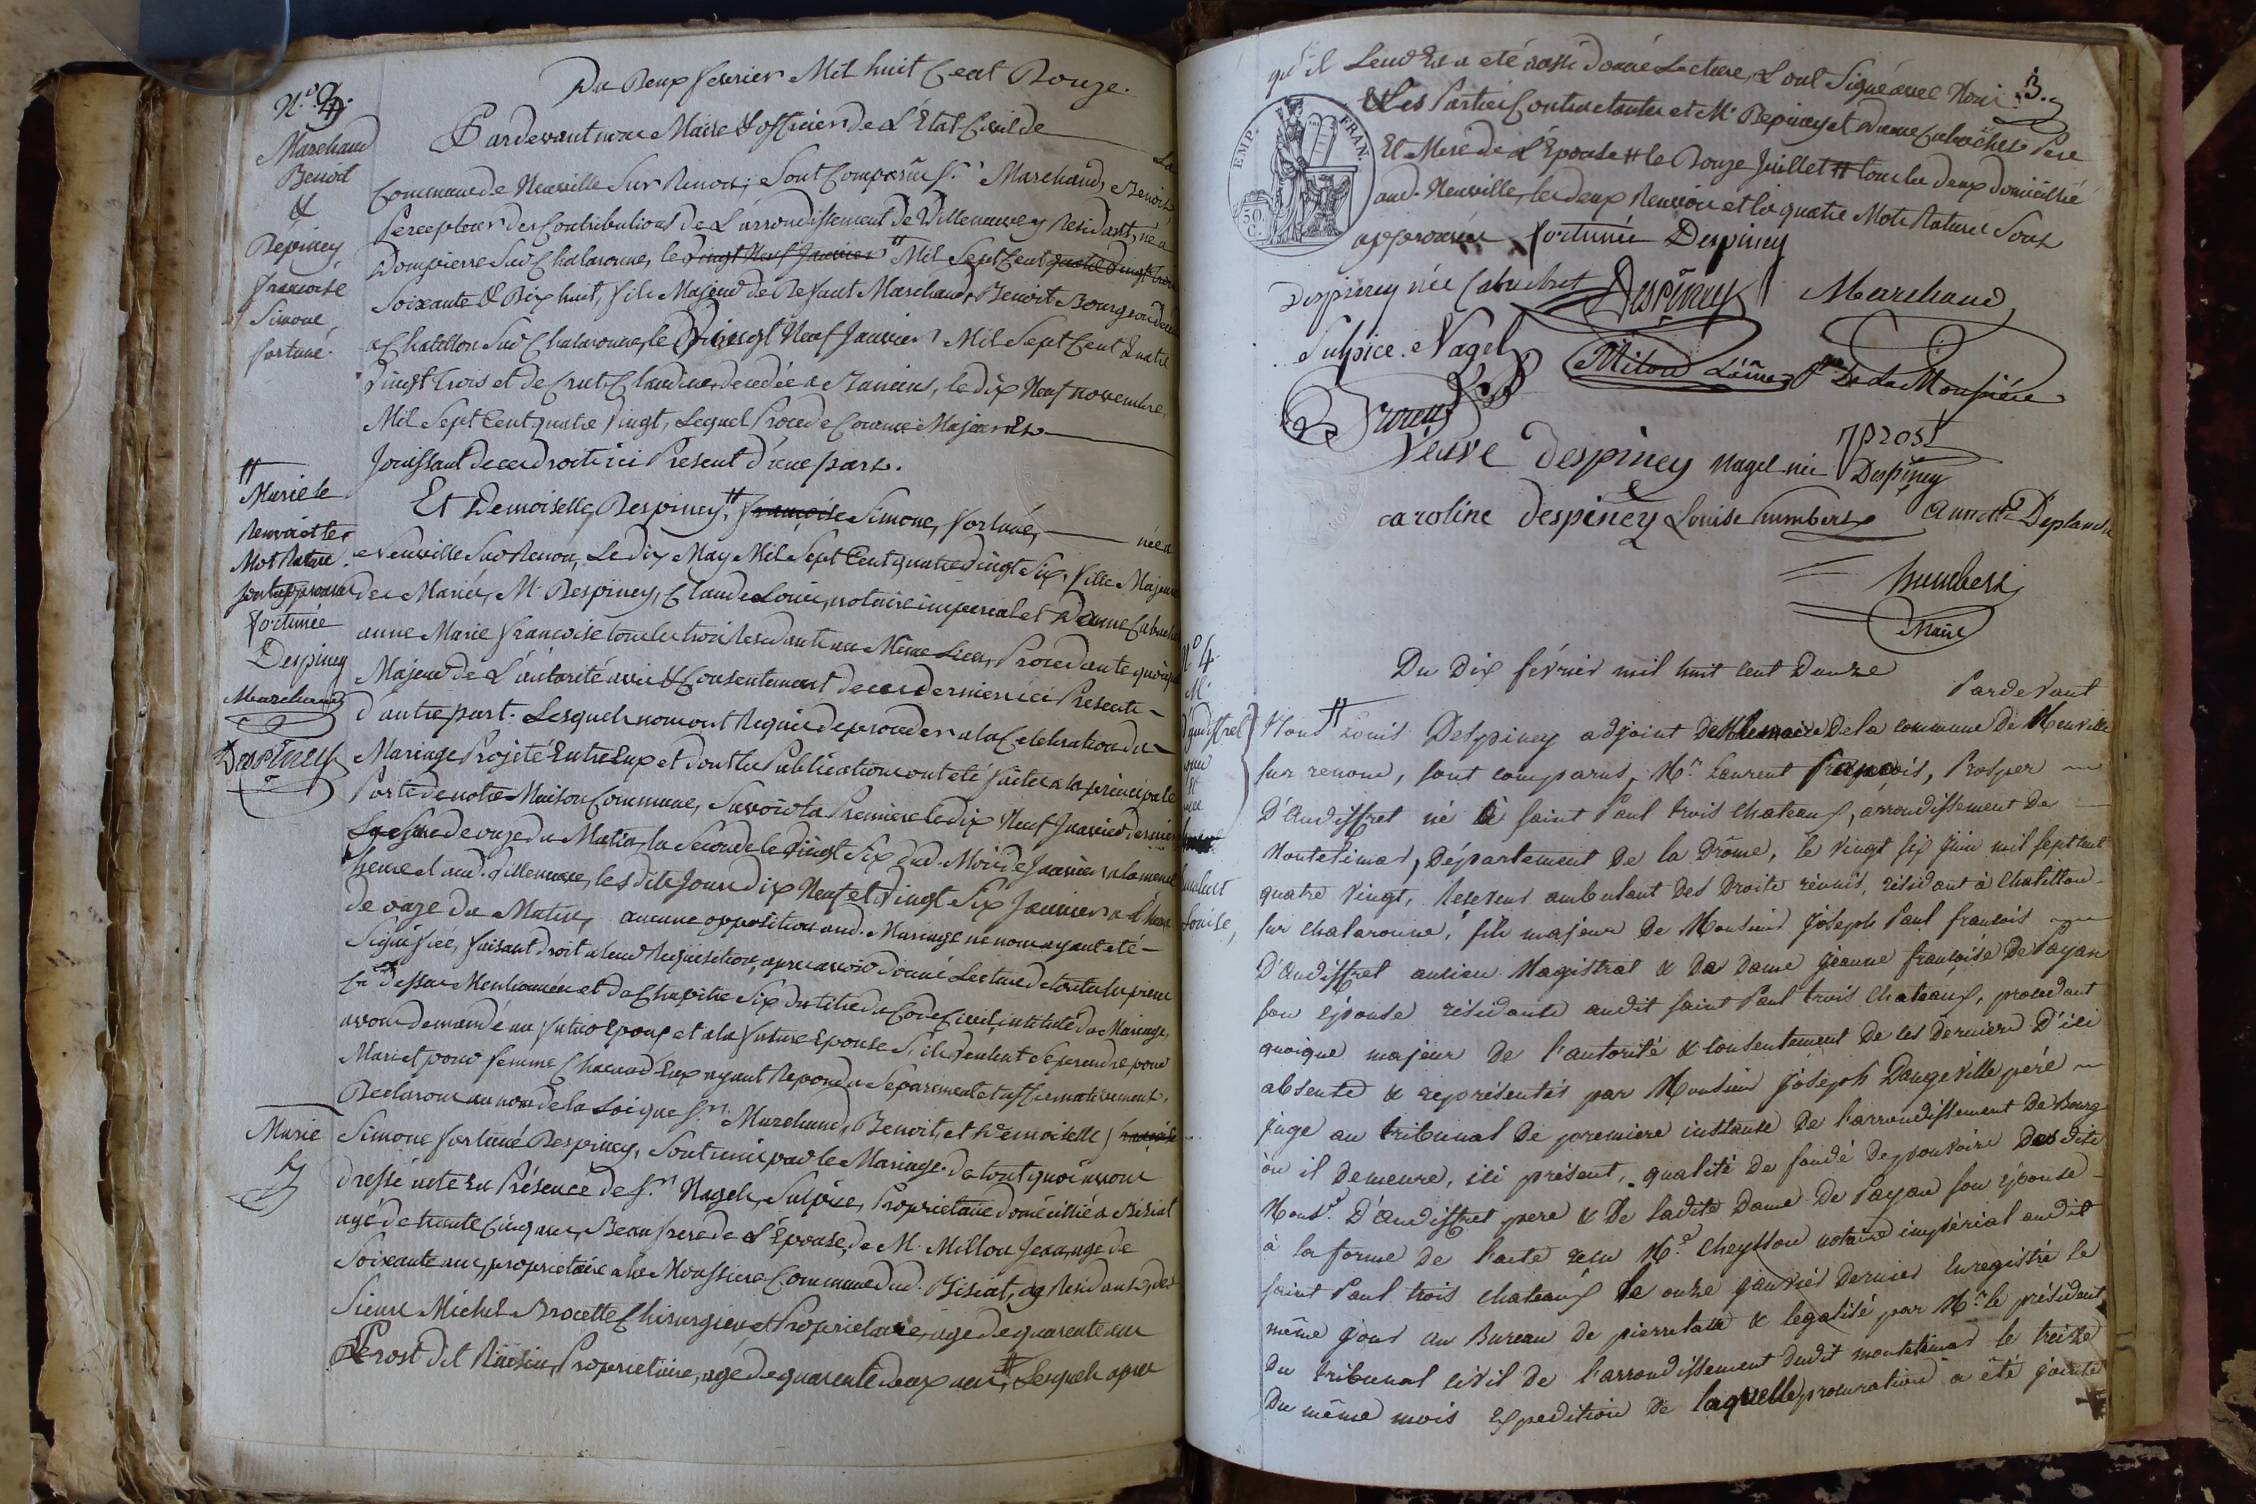 Du Deux fevrier Mil huit Cent Douze.
N.º 3.
Marchand
Benoit
&
Despiney
francoise
Simone,
fortuné.
Pardevant nous Maire & officier de L'État Civil de La
Commune de Neuville Sur Renon, Sont Comparus S.r Marchand, Benoit
Percepteur des Contributions de L'arrondissement de Villeneuve y Residant, né a
Dompierre Sur Chalaronne, le vingt Neuf Janvier # Mil Sept Cent quatre vingt trois
Soixante & Dix huit, fils Majeur de Defunt Marchand Benoit Bourgeois decedé
a Chatillon Sur Chalaronne, le vingt Neuf Janvier Mil Sept Cent Quatre
vingt trois et de Crut, Claudine, decedée a Bancins, le dix Neuf novembre
Mil Sept Cent quatre vingt, Lequel Procede Comme Majeur Et
Jouissant de ces droits ici Present d'une part.
Et Demoiselle, Despiney # francoise Simone, fortuné, née a
Neuville Sur Renon, Le dix May Mil Sept Cent quatre vingt Six, fille Majeure
# Marie le
Renvoi et les
Mot Rature
sont approuvé
fortunée
Despiney
Marchand
Despiney
des Mariés, M. Despiney, Claude Louis, notaire imperial et Dame Cabuchet
anne Marie francoise tous les trois Residants au Même Lieu, Procedante quoique
Majeur de L'autorité avis & Consentement de ces derniers ici Presents
d'autre part. Lesquels nous ont Requis de proceder a la Celebration du
Mariage Projeté Entre Eux et dont les Publications ont eté faites a la principale
Porte de notre Maison Commune, Savoir la Premiere le dix Neuf Janvier dernier
de onze du Matin, la Seconde le vingt Six dud. Mois de Janvier a la meme
heure et aud. Villeneuve, les dits Jours dix Neuf et vingt Six Janvier a L'heure
de onze du Matin, aucune opposition aud. Mariage ne nous ayant eté
Signifiée, faisant droit a leur Requisition, apres avoir donné Lecture de toutes les pieces
Ci dessus Mentionnées et du Chapitre Six du titre du Code Civil, intitulé du Mariage,
avons demandé au futur Epoux et a la future Epouse S'ils veulent Se prendre pour
Mari et pour femme, Chacun d'Eux ayant Repondu Separement et affirmativement,
Declarons au nom de la Loi que S.r Marchand, Benoit, et Demoiselle francoise
Marie
Simone fortuné Despiney, Sont unis par le Mariage. de tout quoi avons
dressé acte En Présence de S.r Nagel, Sulpice, Proprietaire domicilié a Biziat
agé de trente Cinq ans, Beau frere de L'Epouse, de M. Millon Jean, age de
Soixante ans, proprietaire a la Moussiere Commune dud. Biziat, y Residants, des
Sieurs Michel Brocette Chirurgien et Proprietaire, age de quarente ans
Perost dit Proprietaire, agé de quarente deux ans, # Lesquels apres
qu'il Leur En a eté aussi donné Lecture, L'ont Signé avec Nous 3.
& Les Parties Contractantes et M.r Despiney et Dame Cabuchet Pere
Et Mere de L'Epouse # le Douze Juillet # tous les deux domiciliés
aud. Neuville, les deux Renvois et les quatre Mots Raturés Sont
approuvés fortunée Despiney
EMP. FRAN.
50
C.
Despiney née Cabuchet Despiney Marchand
Sulpice Nagel
Milon L'aîné p.re De La Mousiére
Veuve despiney Nagel née Despiney Prost
caroline despiney Louise humbert annette Deplanche
humbert
Maire
N.º 4.
M.
d'audiffret
humbert
louise,
Du Dix février mil huit cent Douze
Pardevant
Nous # Louis Despiney adjoint De la commune De Neuville
sur renom, sont comparus, M.r Laurent François, Prosper
D'Audiffret né à saint Paul trois chateaux, arrondissement De
Montelimar, Département De la Drôme, le vingt six juin mil sept cent
quatre vingt, Receveur ambulant Des Droits réunis, résidant à Chatillon
sur chalaronne, fils majeur De Monsieur Joseph Paul francois
D'Audiffret ancien Magistrat & De Dame jeanne françoise De Payan
son épouse résidants audit saint Paul trois Chateaux, procedant
quoique majeur De l'autorité & consentement De ces Derniers D'ici
absents & représentés par Monsieur Joseph Dangeville péré
juge au tribunal De premiere instance De l'arrondissement De Bourg
òu il Demeure, ici présent, qualité De fondé De pouvoirs Des dits
Mons.r D'Audiffret pere & De ladite Dame De Payan son épouse
à la forme De l'acte reçu M.e Cheysson notaire impérial audit
saint Paul trois chateaux le onze janvier Dernier Enregistré le
même jour au Bureau De pierrelatte & legalisé par M.r le président
Du tribunal civil De l'arrondissement dudit montelimar le treize
Du même mois Expedition De laquelle procuration a été jointe